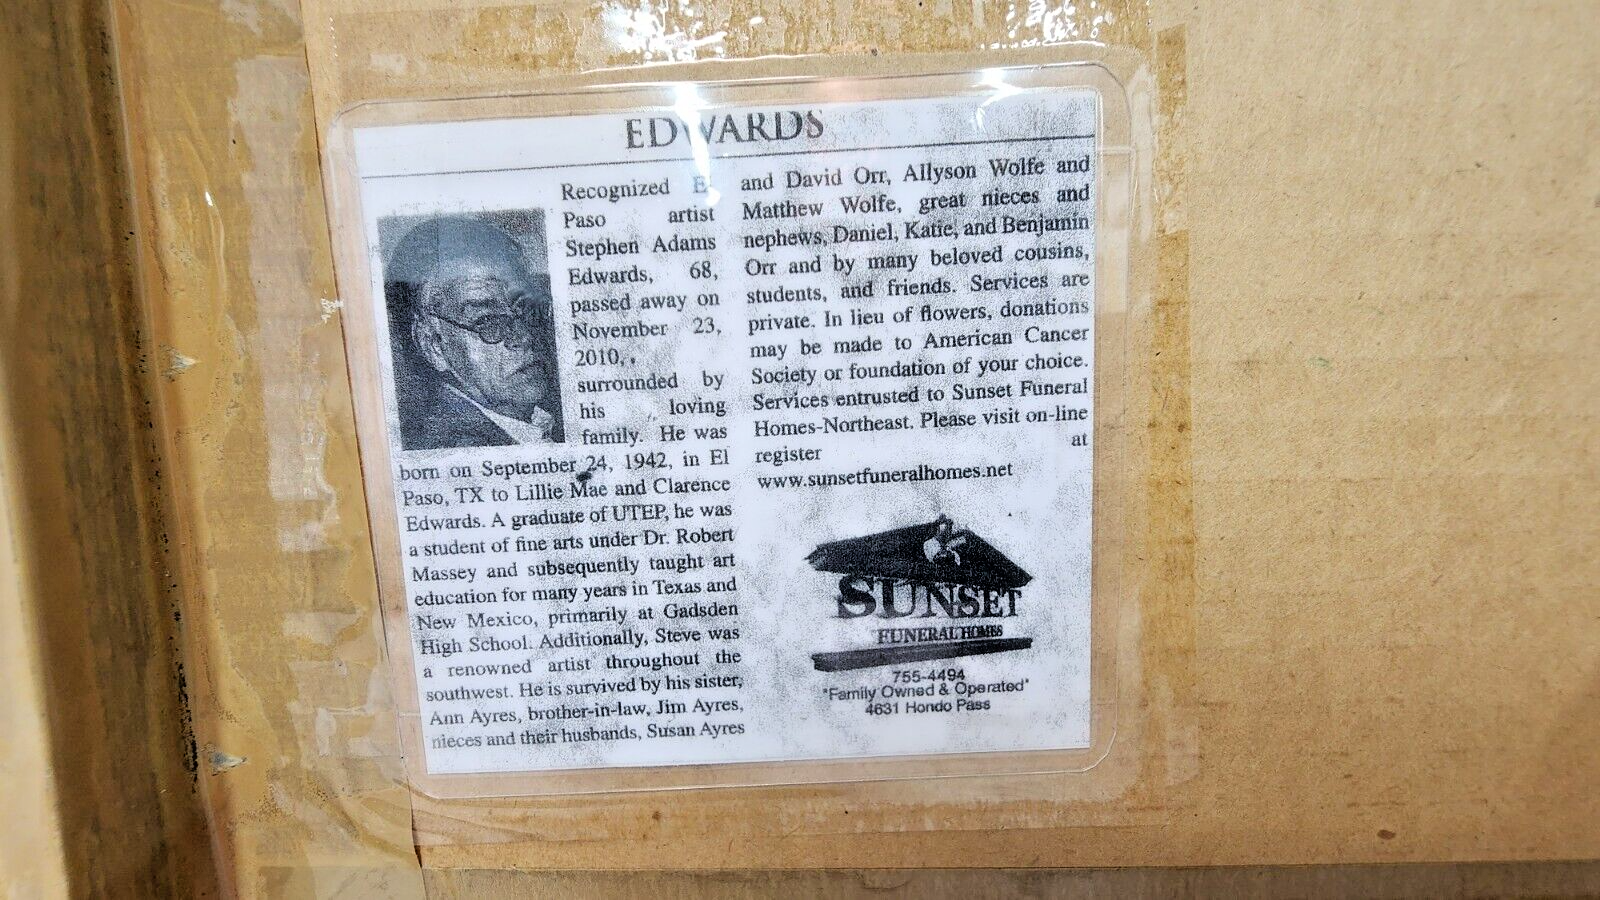 EDWARDS
Recognized El
Paso artist
Stephen Adams
Edwards, 68,
passed away on
November 23,
2010,
surrounded by
his loving
family. He was
born on September 24, 1942, in El
Paso, TX to Lillie Mae and Clarence
Edwards. A graduate of UTEP, he was
a student of fine arts under Dr. Robert
Massey and subsequently taught art
education for many years in Texas and
New Mexico, primarily at Gadsden
High School. Additionally, Steve was
a renowned artist throughout the
southwest. He is survived by his sister,
Ann Ayres, brother-in-law, Jim Ayres,
nieces and their husbands, Susan Ayres
and David Orr, Allyson Wolfe and
Matthew Wolfe, great nieces and
nephews, Daniel, Katie, and Benjamin
Orr and by many beloved cousins,
students, and friends. Services are
private. In lieu of flowers, donations
may be made to American Cancer
Society or foundation of your choice.
Services entrusted to Sunset Funeral
Homes-Northeast. Please visit on-line
register at
www.sunsetfuneralhomes.net
SUNSET
FUNERAL HOMES
755-4494
"Family Owned & Operated"
4631 Hondo Pass